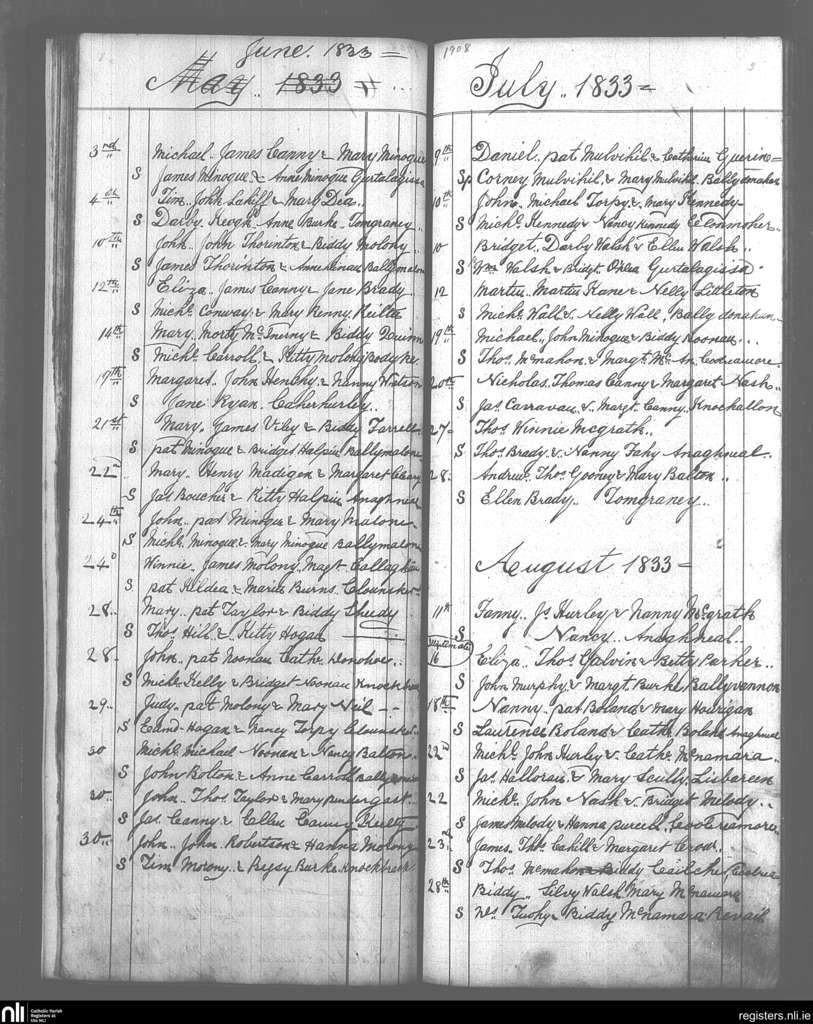 June. 1833 =
May.. 1833
3rd Michael. James Canny & Mary Minogue
S James Minogue & Anne Minogue Gurtalagissa
4th Tim. John Cahill & Mary Dea..
S Darby Keogh Anne Burke. Tomgraney..
10th John.. John Thornton & Biddy Molony..
S James Thornton & Anne Ballymalone
12th Eliza. James Canny & Jane Brady
S Michl. Conway & Mary Kenny.
14th Mary. Morty McInerny & Biddy Quinn
S Michl. Carroll & Kitty Molony Bodyke.
19th Margaret. John Henchy & Nanny Watson
S Jane Ryan. Caherhurley..
21st Mary. James Viley & Biddy Farrell
S pat Minogue & Bridget Halpin Ballymalone
22 Mary. Henry Madigan & Margaret Cleary
S Jas Boucher & Kitty Halpin Anaghneal
24th John.. pat Minogue & Mary Malone
S Michl. Minogue & Mary Minogue Ballymalone
24 Winnie. James Molony. Magt. Callaghan
S pat Hildea & Maria Burns.
28.. Mary. pat Taylor & Biddy Sheedy
S Thos. Hill & Kitty Hogan
28. John.. pat Noonan Cathe. Donohoe..
S Michl. Kelly & Bridget Noonan
29.. Judy. pat Molony & Mary Neil
S Edmd. Hogan & Nancy Torpy
30 Michl. Michael Noonan & Nancy Balton
S John Bolton & Anne Carroll
30.. John.. Thos. Taylor & Mary
S Jas. Canny & Callen Canny
30.. John.. John. Robertson & Hanna Molony
S Tim Molony & Betsy Burke.
1908
July.. 1833 =
9th Daniel.. pat Mulvihil & Catherine Guerin =
Sp Corney Mulvihil. & Mary Mulvihil. Ballydonahan
10th John. Michael Torpy & Mary Kennedy
S Michl. Kennedy & Nancy Kennedy Clonmoher.
10 Bridget. Darby Walsh & Ellen Walsh..
S Wm. Walsh & Bridgt. O'Dea Gurtalagissa.
12 Martin.. Martin Kane & Nelly Littleton
S Michl. Wall & Nelly Wall. Ballydonahan
19th Michael. John Minogue & Biddy Noonan...
S Thos. McMahon & Margt. Mc An. Cooleamore.
20th Nicholas. Thomas Canny & Margaret Nash..
S Jas. Carravan & Margt. Canny. Knockallon
27. Thos. Winnie Mcgrath..
S Thos. Brady & Nanny Fahy Anaghneal..
28. Andrew. Thos. Gooney & Mary Balton..
S Ellen Brady.. Tomgraney..
August 1833 =
11th Fanny.. Js Hurley & Nanny McGrath
S Nancy.. Anaghneal..
16 Eliza.. Thos. Galvin & Betty Parker..
S John Murphy & Margt. Burke Ballyvannon
18th Nanny.. pat Boland & Mary Hourigan
S Laurence Boland & Cathe. Boland Anaghneal
22d Michl. John Hurley & Cathe. McNamara..
S Jas. Hilloran & Mary Scully Lisbareen
22 Michl. John Nash & Bridget Melody..
S James Melody & Hanna purcell. Cooleamore
23d James. Thos. Cahill & Margaret Crow..
S Thos. McMahon Biddy
28th Biddy.. Silvy Walsh Mary McNamara
S Ws. Tuohy & Biddy McNamara
nli
Catholic Parish
Registers at
the NLI
registers.nli.ie